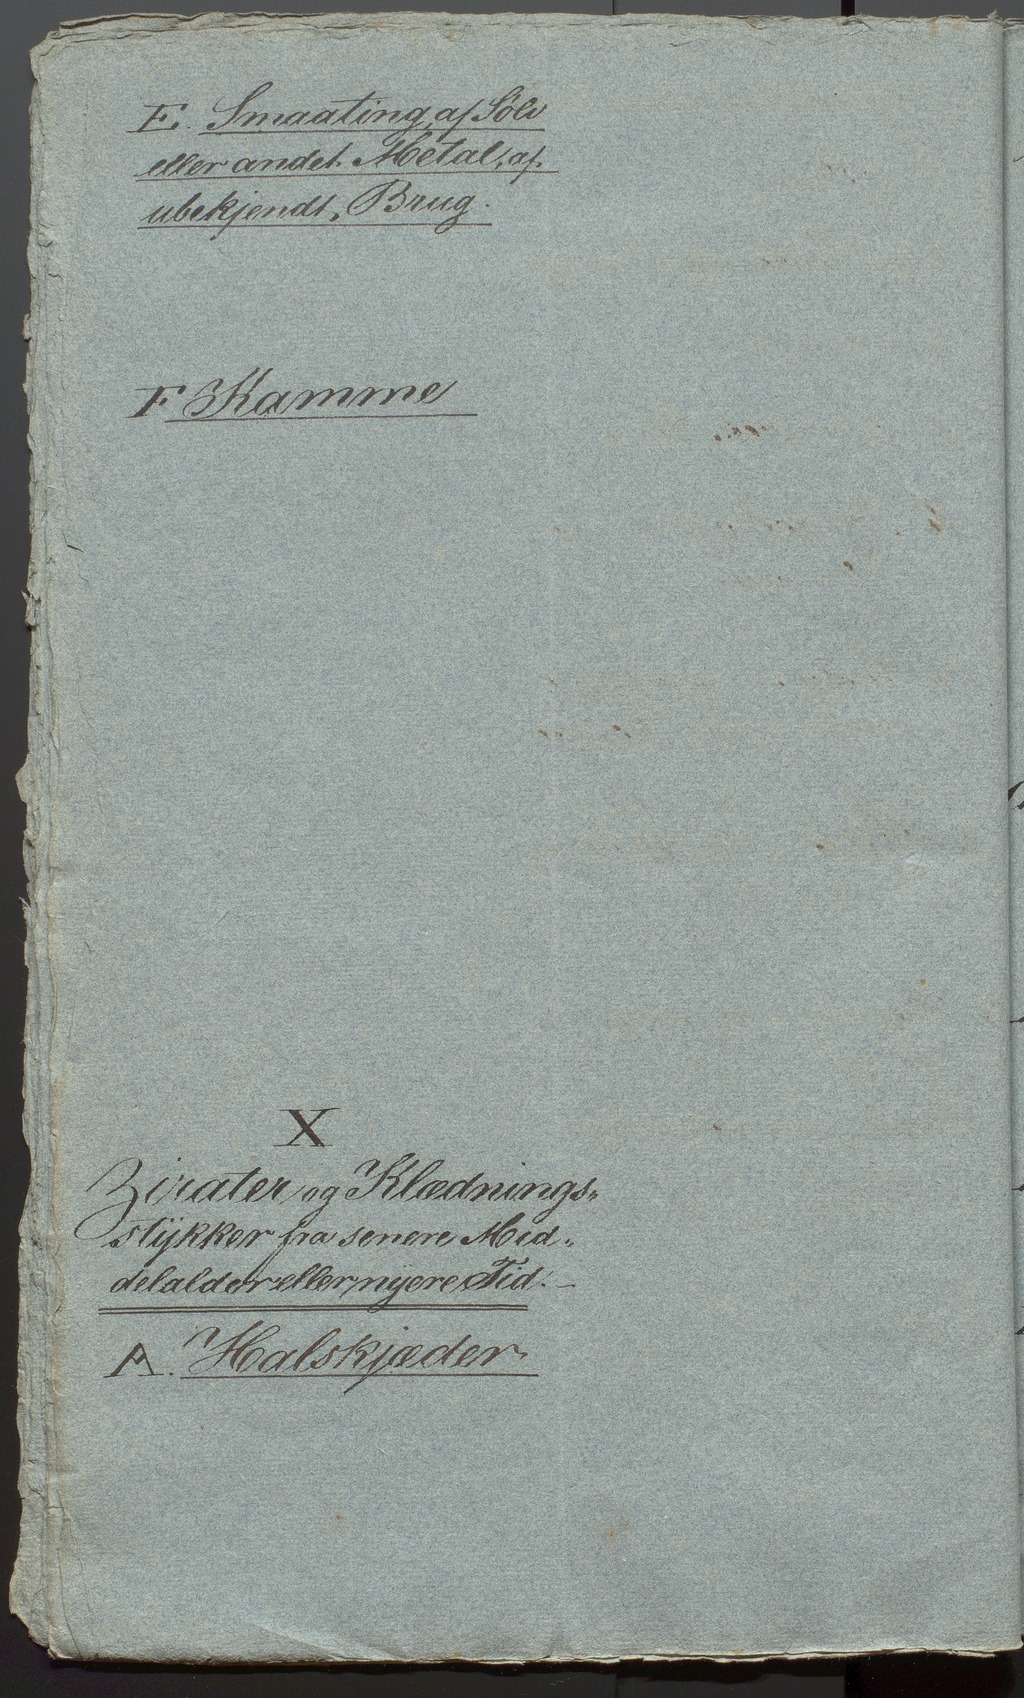 E. Smaating af Sölv
eller andet Metal, af
ubekjendt, Brug.
F Kamme
X
Zirater og Klædnings„
stykker fra senere Mid„
delalder eller nyere Tid. –
A. Halskjæder